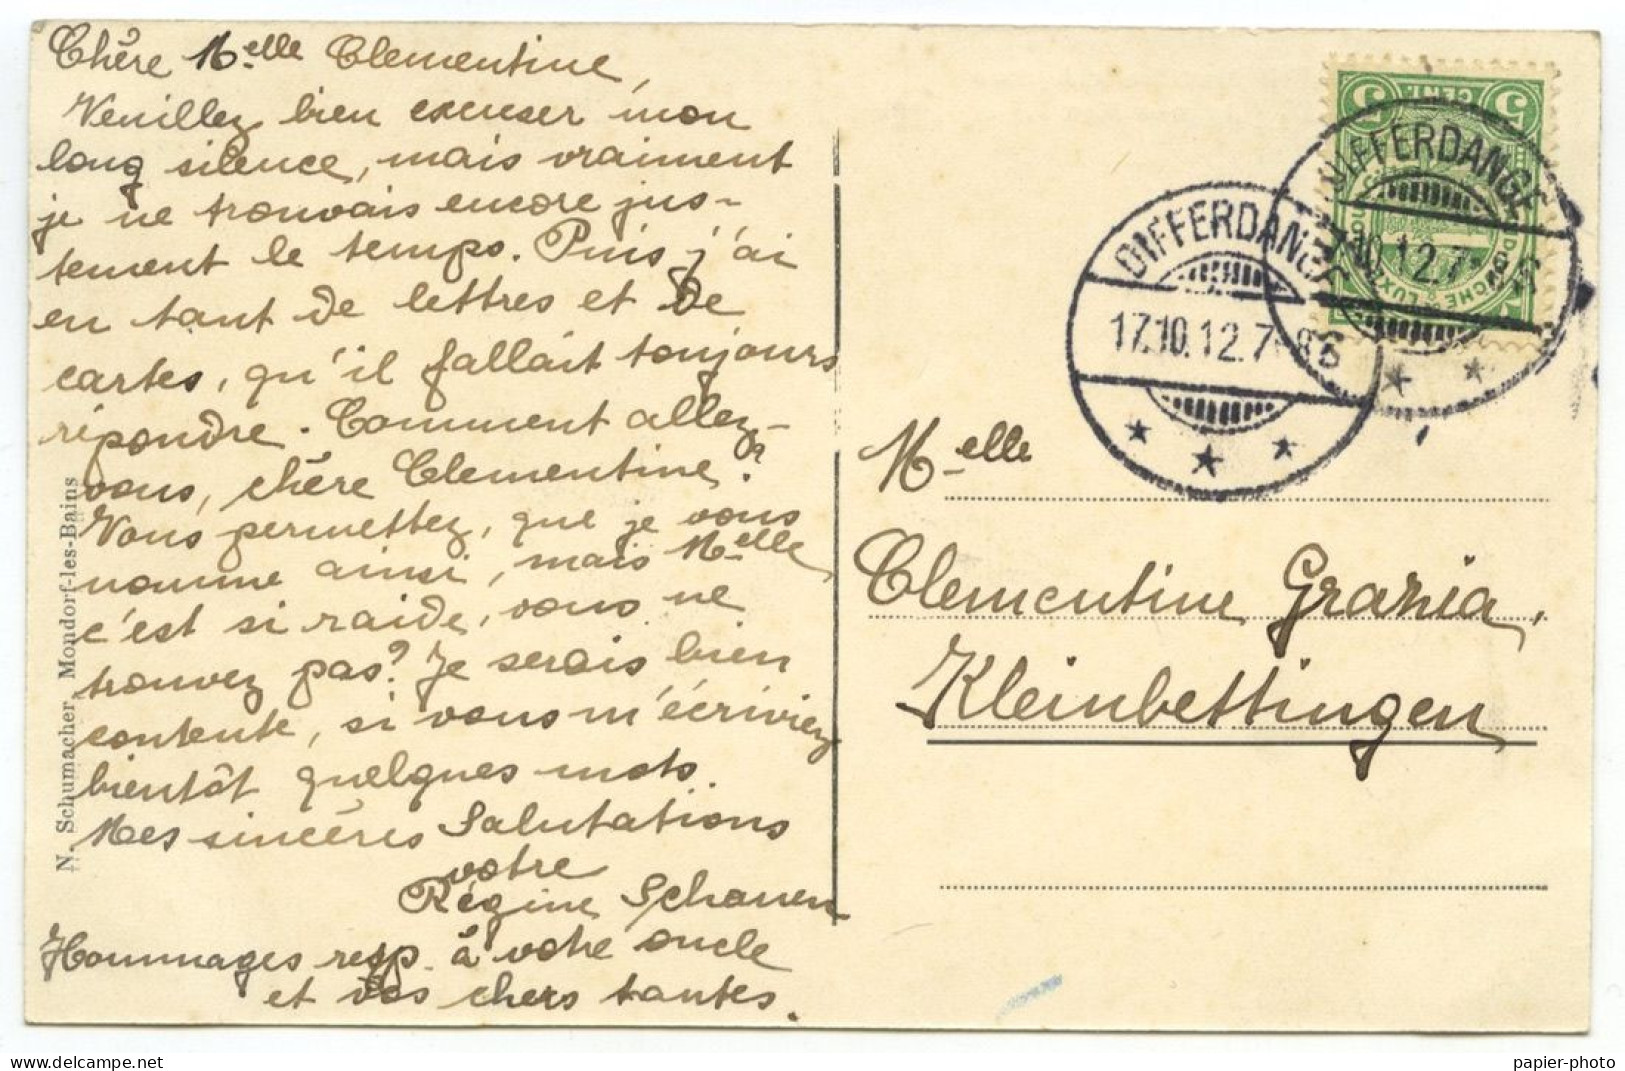 Chère Melle Clementine,
Veuillez bien excuser mon
long silence, mais vraiment
je ne trouvais encore jus-
tement le temps. Puis j'ai
en tant de lettres et de
cartes, qu'il fallait toujours
répondre. Comment allez-
vous, chère Clementine?
Vous permettez, que je vous
nomme ainsi, mais Melle
c'est si raide, vous ne
trouvez pas? Je serais bien
contente, si vous m'écriviez
bientôt quelques mots.
Mes sincères Salutations
votre
Régine Schauen
Hommages resp. à votre oncle
et vos chers tantes.
N. Schumacher, Mondorf-les-Bains
5 CENT. 5
DIFFERDANGE
17.10.12.7-8 S
DIFFERDANGE
17.10.12.7-8 S
Melle
Clementine Grazia,
Kleinbettingen
https://www.delcampe.net
papier-photo